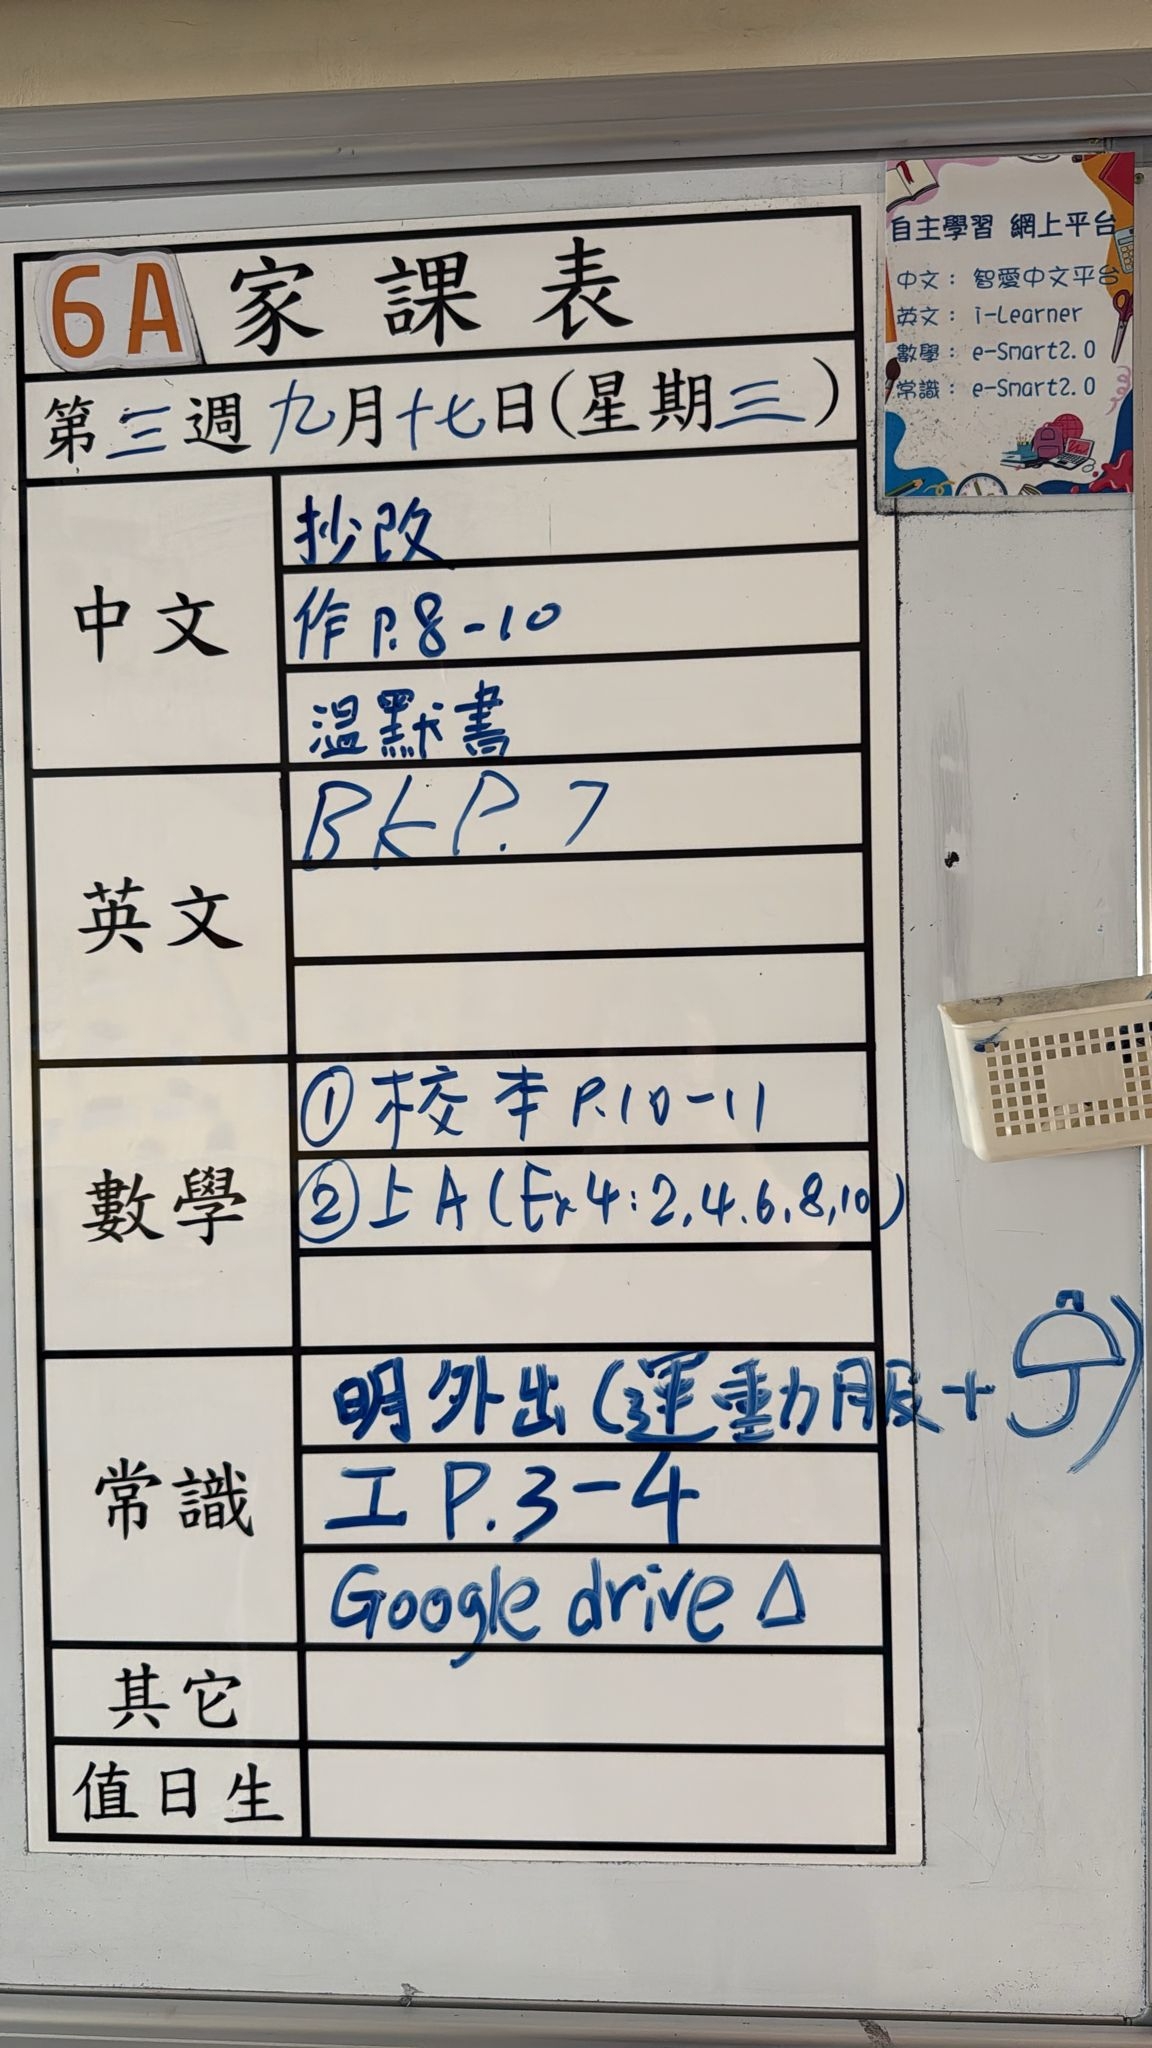 6A 家課表
第三週 九月十七日(星期三)
中文
抄改
作 P.8-10
溫默書
英文
Bk P.7
數學
① 校本 P.10-11
② 上A (Ex 4: 2, 4, 6, 8, 10)
常識
明外出 (運動服 + )
工 P.3-4
Google drive △
其它
值日生
自主學習 網上平台
中文： 智愛中文平台
英文： i-Learner
數學： e-Smart2.0
常識： e-Smart2.0